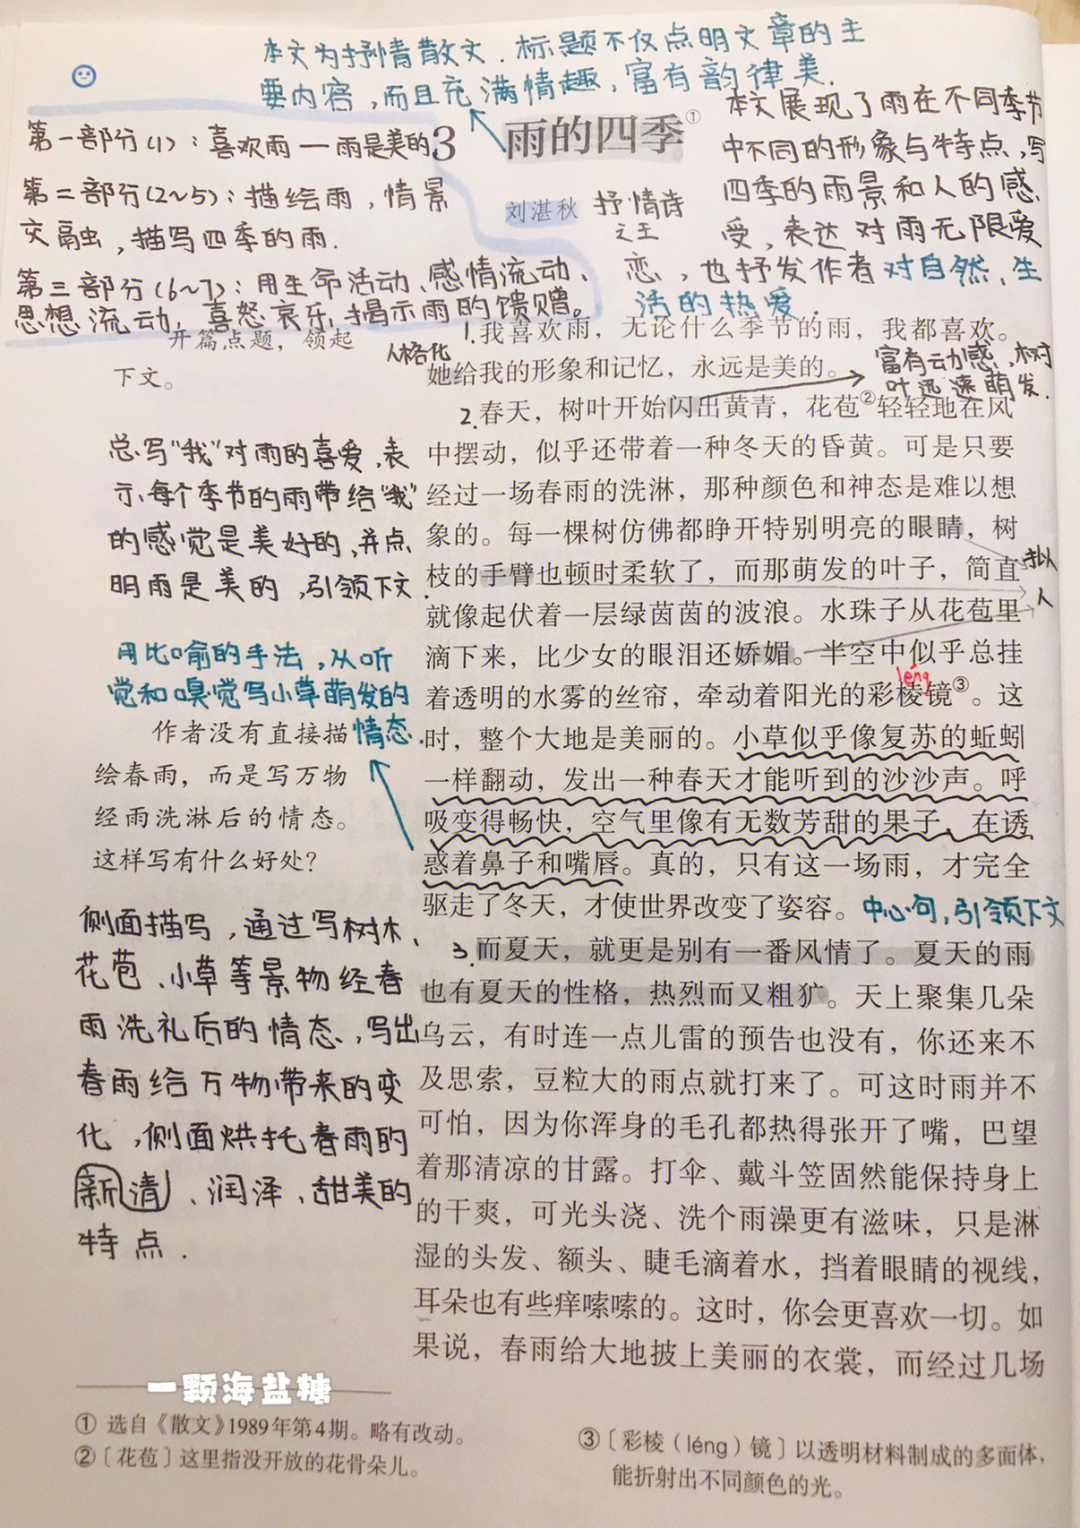 本文为抒情散文.标题不仅点明文章的主
要内容,而且充满情趣,富有韵律美.
第一部分(1):喜欢雨—雨是美的
第二部分(2~5):描绘雨,情景
交融,描写四季的雨.
第三部分(6~7):用生命活动、感情流动、
思想流动,喜怒哀乐,揭示雨的馈赠。
3 雨的四季①
刘湛秋 抒情诗
之王
本文展现了雨在不同季节
中不同的形象与特点,写
四季的雨景和人的感
受,表达对雨无限爱
恋,也抒发作者对自然,生
活的热爱.
开篇点题,领起
下文。
人格化
总写“我”对雨的喜爱,表
示每个季节的雨带给“我”
的感觉是美好的,并点
明雨是美的,引领下文.
用比喻的手法,从听
觉和嗅觉写小草萌发的
情态.
作者没有直接描
绘春雨,而是写万物
经雨洗淋后的情态。
这样写有什么好处?
侧面描写,通过写树木、
花苞、小草等景物经春
雨洗礼后的情态,写出
春雨给万物带来的变
化,侧面烘托春雨的
新清、润泽、甜美的
特点.
1.我喜欢雨,无论什么季节的雨,我都喜欢。
她给我的形象和记忆,永远是美的。
富有动感,树
叶迅速萌发.
2.春天,树叶开始闪出黄青,花苞②轻轻地在风
中摆动,似乎还带着一种冬天的昏黄。可是只要
经过一场春雨的洗淋,那种颜色和神态是难以想
象的。每一棵树仿佛都睁开特别明亮的眼睛,树
枝的手臂也顿时柔软了,而那萌发的叶子,简直
拟人
就像起伏着一层绿茵茵的波浪。水珠子从花苞里
滴下来,比少女的眼泪还娇媚。半空中似乎总挂
léng
着透明的水雾的丝帘,牵动着阳光的彩棱镜③。这
时,整个大地是美丽的。小草似乎像复苏的蚯蚓
一样翻动,发出一种春天才能听到的沙沙声。呼
吸变得畅快,空气里像有无数芳甜的果子,在诱
惑着鼻子和嘴唇。真的,只有这一场雨,才完全
驱走了冬天,才使世界改变了姿容。
中心句,引领下文
3.而夏天,就更是别有一番风情了。夏天的雨
也有夏天的性格,热烈而又粗犷。天上聚集几朵
乌云,有时连一点儿雷的预告也没有,你还来不
及思索,豆粒大的雨点就打来了。可这时雨并不
可怕,因为你浑身的毛孔都热得张开了嘴,巴望
着那清凉的甘露。打伞、戴斗笠固然能保持身上
的干爽,可光头浇、洗个雨澡更有滋味,只是淋
湿的头发、额头、睫毛滴着水,挡着眼睛的视线,
耳朵也有些痒嗦嗦的。这时,你会更喜欢一切。如
果说,春雨给大地披上美丽的衣裳,而经过几场
一颗海盐糖
① 选自《散文》1989年第4期。略有改动。
②〔花苞〕这里指没开放的花骨朵儿。
③〔彩棱(léng)镜〕以透明材料制成的多面体,
能折射出不同颜色的光。